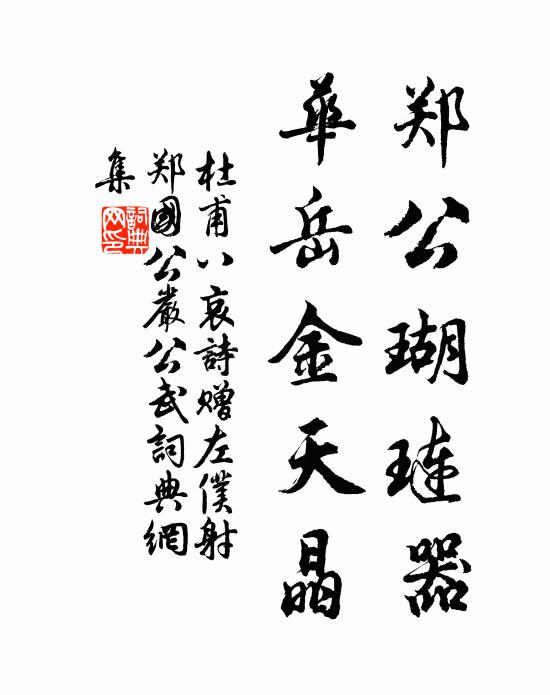 郑公瑚琏器
華岳金天晶
杜甫八哀詩赠左僕射
郑國公嚴公武詞典網
集
詞典网印